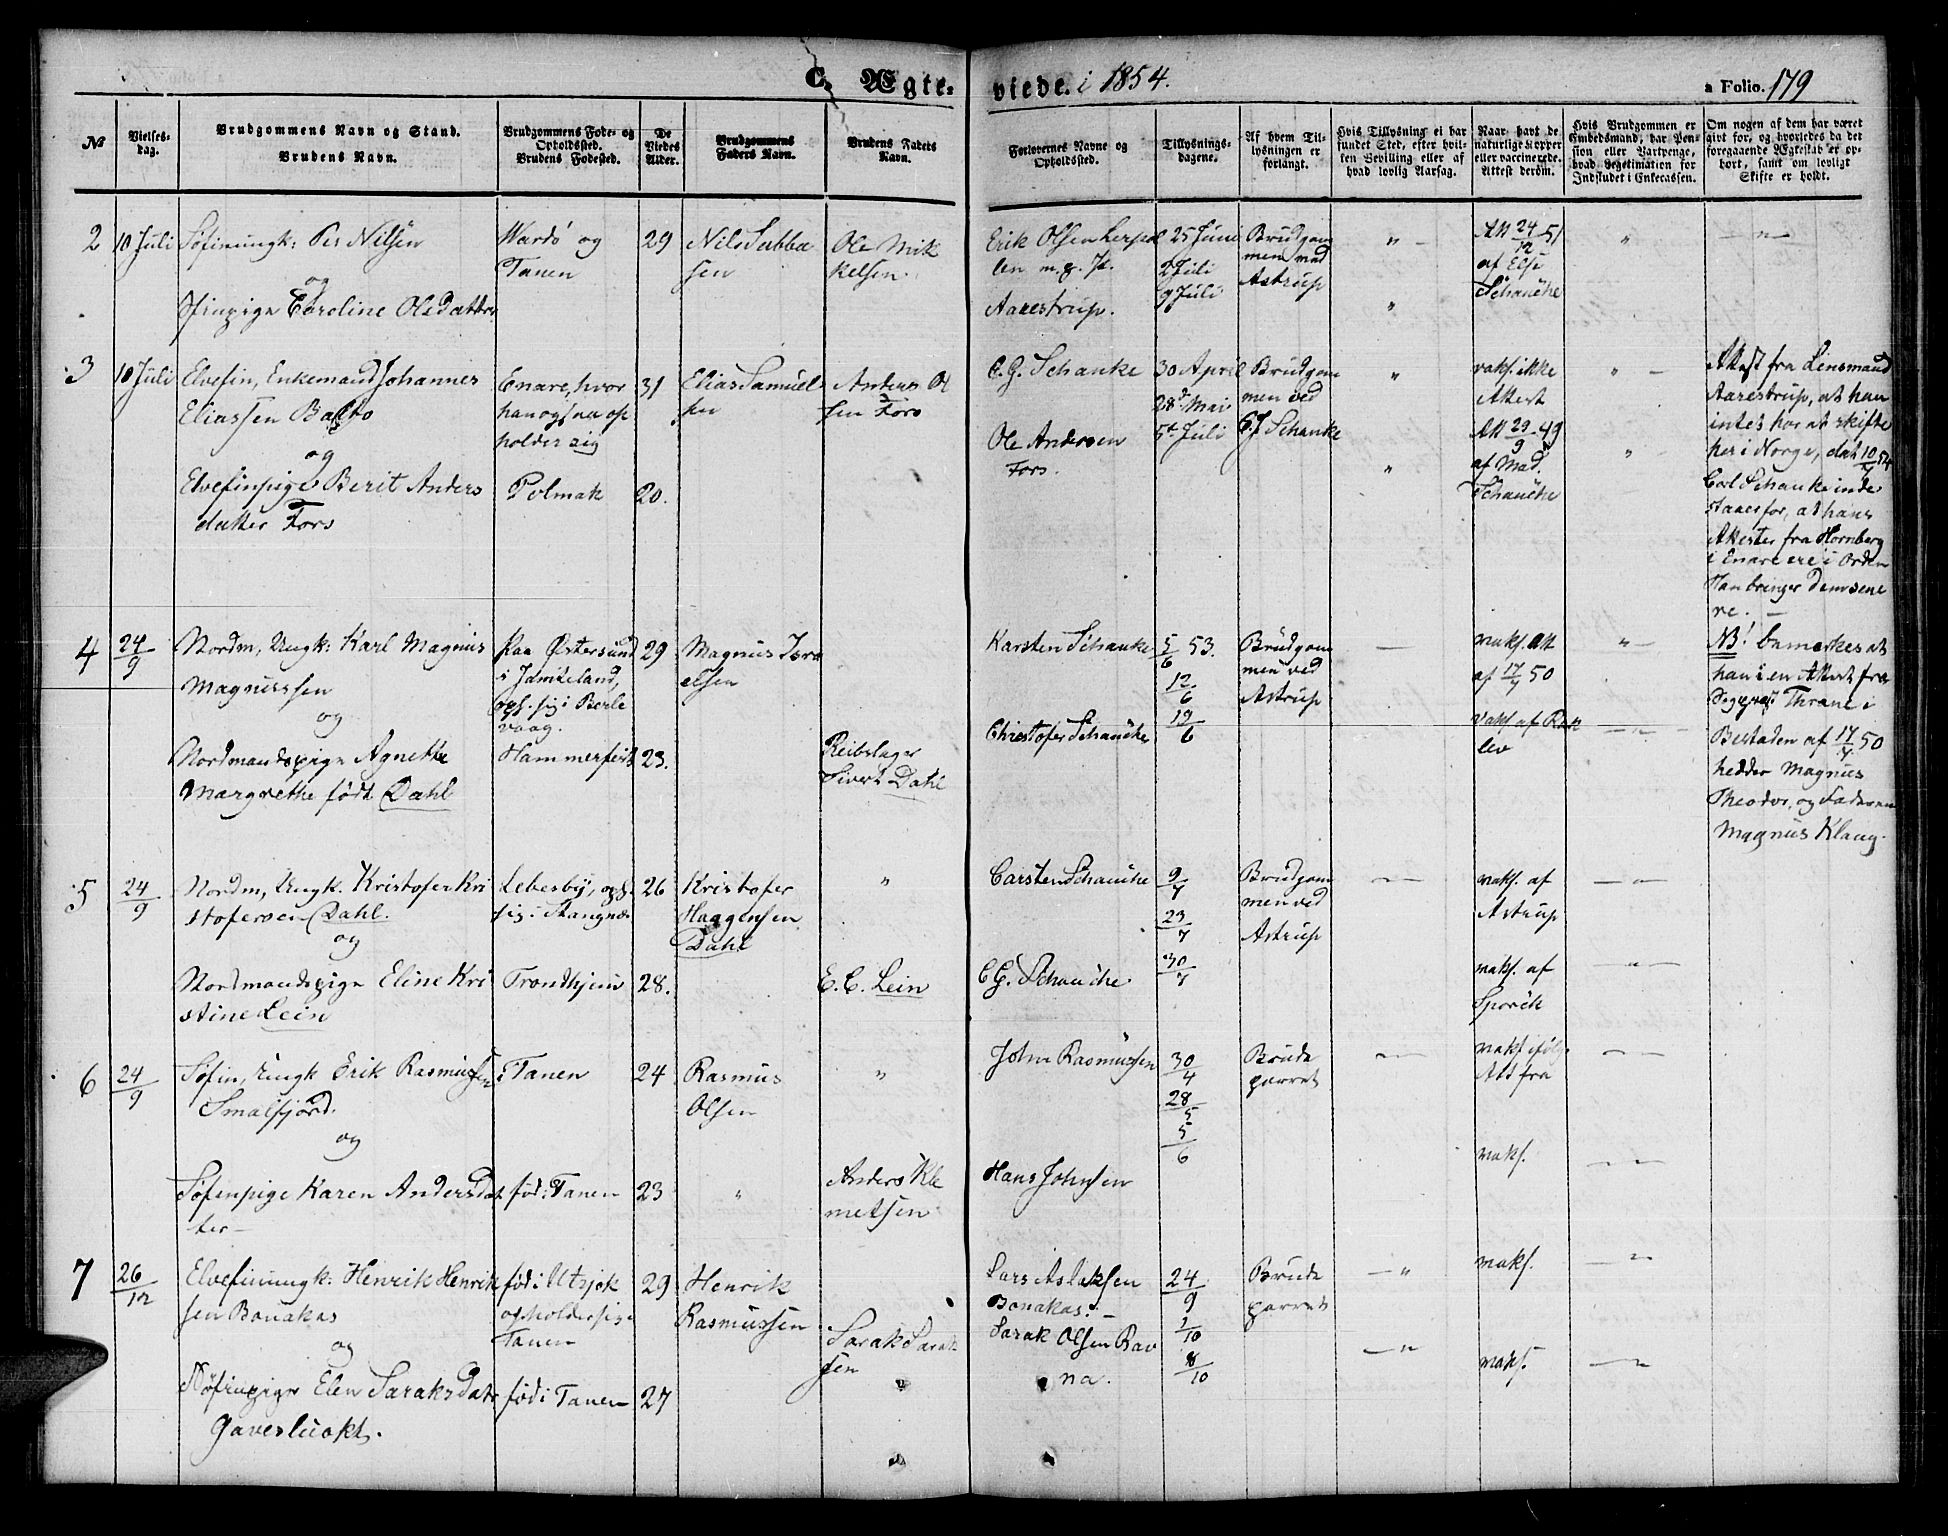 C. Ægte- viede. i 1854.
a Folio. 179
№
Vielses-
dag.
Brudgommens Navn og Stand.
Brudens Navn.
Brudgommens Føde- og
Opholdssted.
Brudens Fødested.
De
Viedes
Alder.
Brudgommens
Faders Navn.
Brudens Faders
Navn.
Forlovernes Navne og
Opholdssted.
Tillysnings-
dagene.
Af hvem Til-
lysningen er
forlangt.
Hvis Tillysning ei har
fundet Sted, efter hvil-
ken Bevilling eller af
hvad lovlig Aarsag.
Naar havt de
naturlige Kopper
eller vaccinerede.
Attest derom.
Hvis Brudgommen er
Embedsmand, har Pen-
sion eller Vartpenge,
hvad Legitimation for
Indskudet i Enkecassen.
Om nogen af dem har været
gift før, og hvorledes da det
foregaaende Ægteskab er op-
hørt, samt om lovligt
Skifte er holdt.
2
10 Juli
Søfinungk: Per Nilsen
og
Sfinpige Caroline Olsdatter
Wardö og
Tanen
29
Nils Sabba
sen
Ole Mik
kelsen.
Erik Olsen Lerpol
len m. g. P.
Aarestrup.
25 Juni
2 Juli
9 Juli
Brudgom
men ved
Astrup
" —
"
Att 24/12 51
af Else
Schanche
"
— " —
3
10 Juli
Elvefin, Enkemand Johannes
Eliassen Balto
og
Elvefinpige Berit Anders
datter Fors
Enare, hvor
han ogsaa op
holder sig
Polmak
31
20.
Elias Samuel
sen
Anders Ol
sen Fors
C. G. Schanke
Ole Andersen
Fors.
30 April
28d Mai
5t Juli
Brudgom
men ved
C. G. Schanke
"
"
vaks. ikke
Attest
Att 29/9 49
af Mad.
Schanche
" —
"
Attest fra Lensmand
Aarestrup, at han
intet har at skifte
her i Norge, dat 10/7 54
Carl Schanke inde
staaer for, at hans
Attester fra Hornberg
i Enare ere i Orden
Han bringer dem sene
re. —
4
24/9
Nordm, Ungk: Karl Magnus
Magnussen
og
Nordmandspige Agnethe
Margrethe født Dahl
Paa Østersund
i Jämteland,
oph. sig i Berle
vaag.
Hammerfest
29
23.
Magnus Isra
elsen
Reibslager
Sivert Dahl
Karsten Schanke
Christofer Schanche
5/6 53.
12/6
19/6
Brudgom
men ved
Astrup
—
—
vaks. att
af 17/7 50
vaks af Rak
lev
" —
— " —
NB! bemerkes at
han i en Attest fra
Thrane i
Bestaden af 17/7 50
hedder Magnus
Theodor, og Faderen
Magnus Klang.
5
24/9
Nordm, Ungk. Kristofer Kri
stofersen Dahl.
og
Nordmandspige Eline Kri
stine Lein
Lebesby, oph.
sig i Stangnæs
Trondhjem
26
28.
Kristofer
Haggensen
Dahl
"
E. C. Lein
Carsten Schanche
C G. Schanche
9/7
23/7
30/7
Brudgom
men ved
Astrup
— " —
vaks. af
Astrup
vaks. af
Sporök
— " —
— " —
6
24/9
Søfin, Ungk Erik Rasmussen
Smalfjord.
og
Søfinpige Karen Andersdat
ter —
i Tanen
fød i Tanen
24
23
Rasmus
Olsen
"
"
Anders Kle
metsen
John Rasmussen
Hans Johnsen
30/4
28/5
5/6
Brude
parret
— " —
vaks ifølg
Att fra
vaks.
— " —
— " —
7
26/12
Elvefinungk: Henrik Henrik
sen Bonakas
og
Søfinpige Elen Saraksdatt
Gavesluokt.
fød i Utsjok
opholder sig i
Tanen
fød i Tanen
29
27
Henrik
Rasmussen
Sarak Sarak
sen
"
Lars Aslaksen
Bonakas. —
Sarak Olsen Rav
na.
24/9
1/10
8/10
Brude
parret
— "
— " —
vaks.
vaks.
— " —
— " —